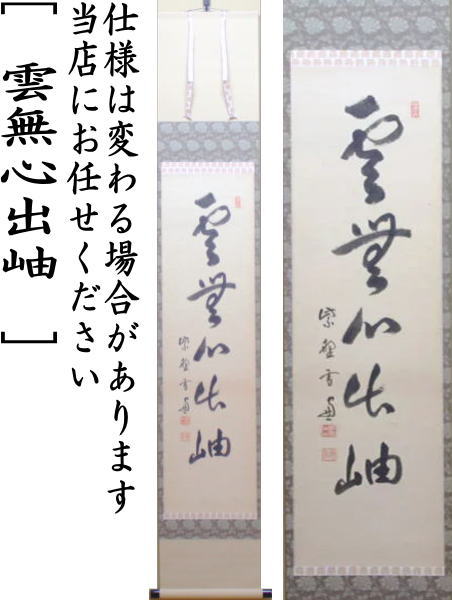 仕様は変わる場合があります
当店にお任せください
[雲無心出岫]
雲無心出岫
雲無心出岫